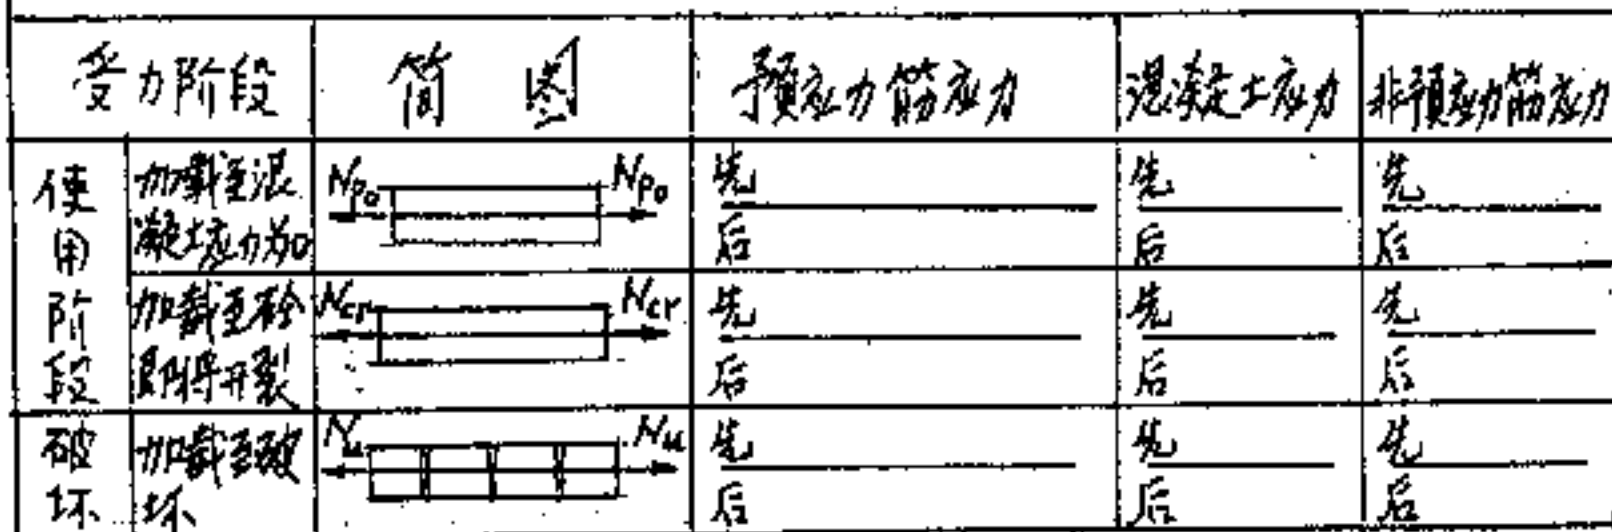 受力阶段 简 图 预应力筋应力 混凝土应力 非预应力筋应力
使用阶段 加载至混凝土应力为0 Np₀ Np₀ 先 先 先
后 后 后
加载至砼即将开裂 Ncr Ncr 先 先 先
后 后 后
破坏 加载至破坏 Nu Nu 先 先 先
后 后 后